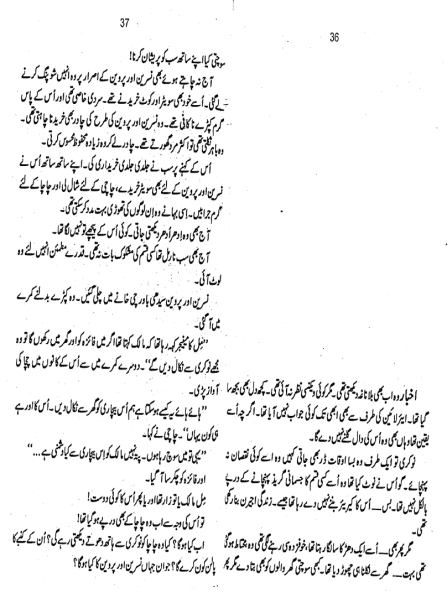 36
اخبار وہ اب بھی بلاناغہ دیکھتی تھی۔ مگر کوئی ویکنسی نظر نہ آئی تھی۔ کچھ دل بھی بجھ سا
گیا تھا۔ ایئر لائین کی طرف سے بھی ابھی تک کوئی جواب نہیں آیا تھا۔ اگرچہ اُسے
یقین تھا وہاں بھی وہ اُس کی دال گلنے نہیں دے گا۔
نوکری تو ایک طرف وہ بسا اوقات ڈر بھی جاتی کہیں وہ اسے کوئی نقصان نہ
پہنچائے۔ گو اُس نے نوٹ کیا تھا وہ اُسے کسی قسم کا جسمانی گزند پہنچانے کے درپے
بالکل نہیں تھا۔ بس۔۔۔ اُس کا کیریئر بننے نہیں دے رہا تھا جیسے۔ زندگی اجیرن بنا رکھی
تھی۔
مگر پھر بھی۔۔۔ اُسے ایک دھڑکا سا لگا رہتا تھا، خوفزدہ سی رہنے لگی تھی وہ محتاط ہو گئی
تھی بہت۔۔۔ گھر سے نکلنا ہی چھوڑ دیا تھا۔ کبھی سوچتی گھر والوں کو بھی بتا دے مگر پھر
37
سوچتی کیا اپنے ساتھ سب کو پریشان کرنا!
آج نہ چاہتے ہوئے بھی نسرین اور پروین کے اصرار پر وہ انہیں شوپنگ کرنے
لے گئی۔ اُسے خود بھی سویٹر اور کوٹ خریدنے تھے۔ سردی خاصی تھی اور اُس کے پاس
گرم کپڑے ناکافی تھے۔ وہ نسرین اور پروین کی طرح کی چادر بھی خریدنا چاہتی تھی۔
وہ باہر نکلتی تھی تو اکثر مرد گھورتے تھے۔ چادر لے کر وہ زیادہ محفوظ محسوس کرتی۔
اُس کے کہنے پر سب نے جلدی جلدی خریداری کی۔ اپنے ساتھ ساتھ اُس نے
نسرین اور پروین کے لئے بھی سویٹر خریدے، چاچی کے لئے شال لی اور چاچا کے لئے
گرم جرابیں۔ اسی بہانے وہ ان لوگوں کی تھوڑی بہت مدد کر سکتی تھی۔
آج بھی وہ اِدھر اُدھر دیکھتی جاتی۔ کوئی اُس کے پیچھے تو نہیں لگا تھا۔
آج بھی سب نارمل تھا کسی قسم کی مشکوک بات نہ تھی۔ قدرے مطمئن انہیں لئے وہ
لوٹ آئی۔
نسرین اور پروین سیدھی باورچی خانے میں چلی گئیں۔ وہ کپڑے بدلنے کمرے
میں آ گئی۔
"مِل کا مینیجر کہہ رہا تھا کہ مالک کہتا اگر میں فائزہ کو اور گھر میں رکھوں گا تو وہ
مجھے نوکری سے نکال دیں گے"۔ دوسرے کمرے میں سے اُس کے کانوں میں چاچا کی
آواز پڑی۔
"ہائے ہائے یہ کیسے ہو سکتا ہے ہم اُس بیچاری کو گھر سے نکال دیں۔ اُس کا اور ہے
ہی کون یہاں"۔ چاچی نے کہا۔
"یہی تو میں سوچ رہا ہوں۔ پتہ نہیں مالک کو اس بیچاری سے کیا دشمنی ہے۔۔۔"
اور فائزہ کو چکر سا آ گیا۔
مِل مالک یا تو زار تھا اور یا پھر اُس کا کوئی دوست!
تو اُس کی وجہ سے اب وہ چاچا کے بھی درپے ہو گیا تھا!
اب کیا ہو گا؟ کیا وہ چاچا کو نوکری سے ہاتھ دھوتے دیکھتی رہے گی؟ اُن کے کنبے کا
پالن کون کرے گا؟ جوان جہاں نسرین اور پروین کا کیا ہو گا؟